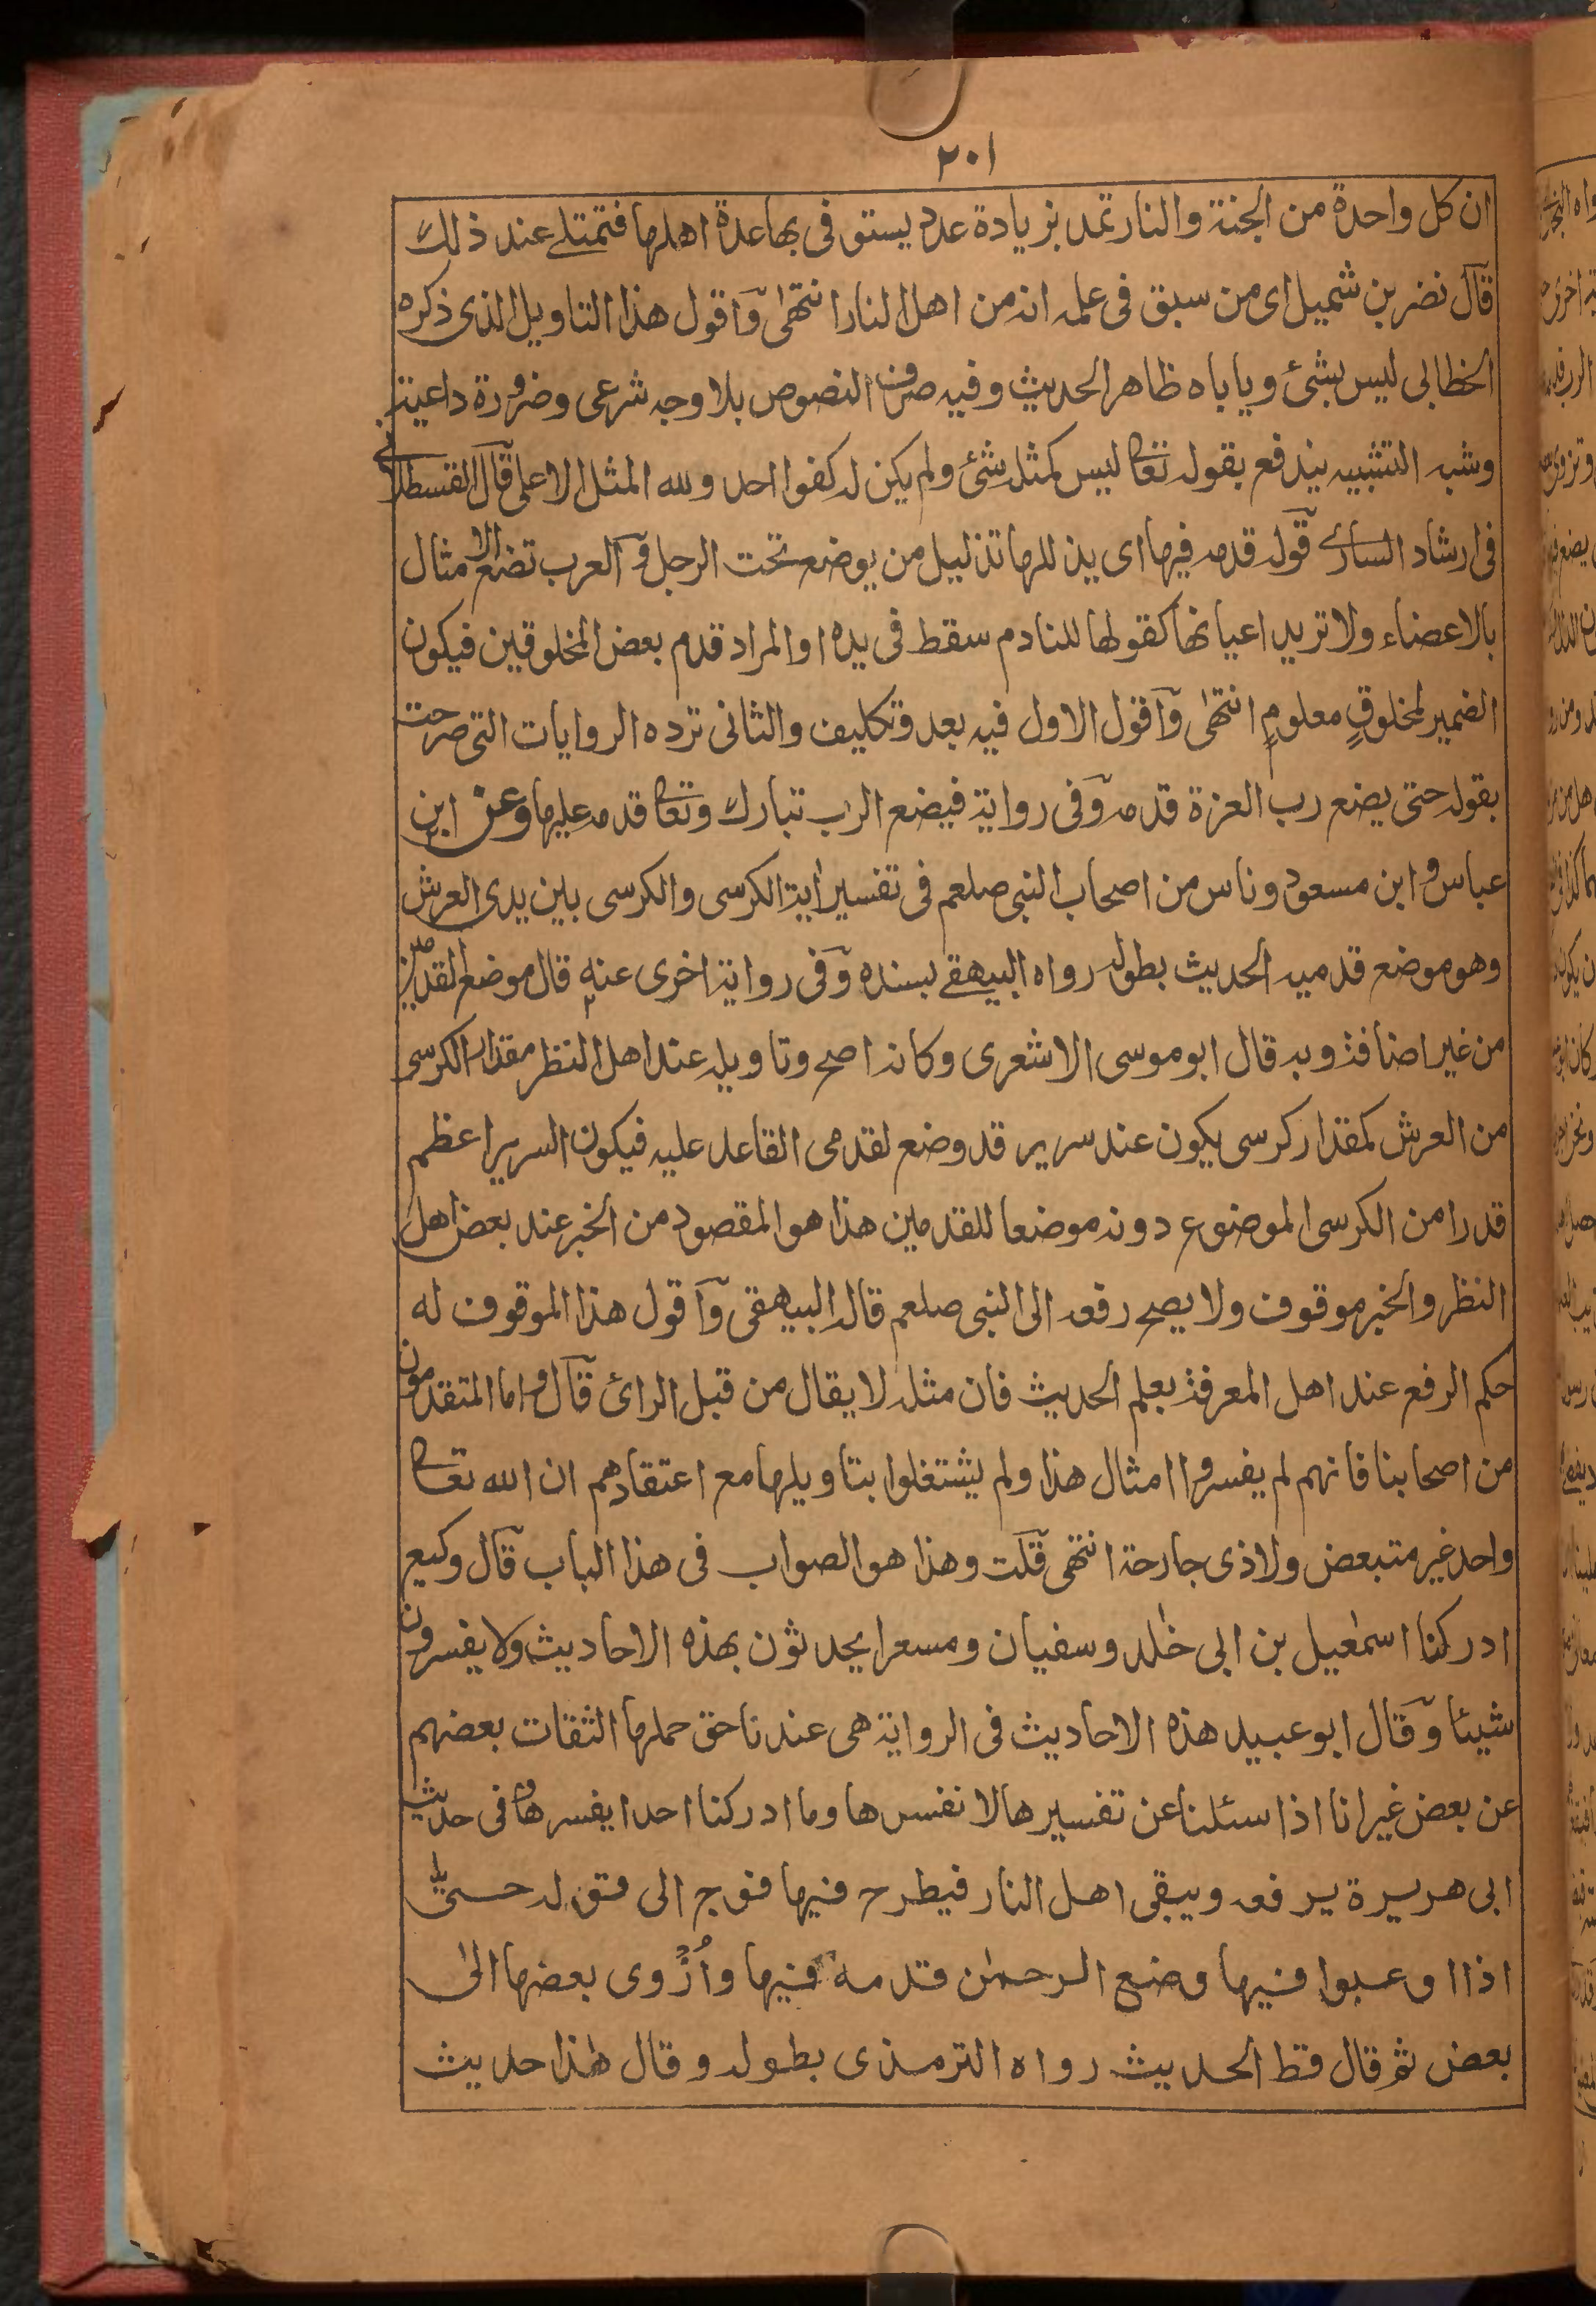 ٢٠١
ان كل واحدة من الجنة والنار تمد بزيادة عدد يستوفى بها عدة اهلها فتمتلئ عند ذلك
قال نضر بن شميل اى من سبق فى علمه انه من اهل النار انتهى واقول هذا التاويل الذى ذكره
الخطابى ليس بشئ وياباه ظاهر الحديث وفيه صرف النصوص بلا وجه شرعى وضرورة داعية
وشبه التشبيه يندفع بقوله تعا ليس كمثله شئ ولم يكن له كفوا احد ولله المثل الاعلى قال القسطلانى
فى ارشاد السارى قوله قدمه فيها اى يذللها تذليل من يوضع تحت الرجل والعرب تضع الامثال
بالاعضاء ولا تريد اعيانها كقولها للنادم سقط فى يده او المراد قدم بعض المخلوقين فيكون
الضمير لمخلوقٍ معلومٍ انتهى واقول الاول فيه بعد وتكليف والثانى ترده الروايات التى صرحت
بقوله حتى يضع رب العزة قدمه وفى رواية فيضع الرب تبارك وتعا قدمه عليها وعن ابن
عباس وابن مسعود وناس من اصحاب النبى صلعم فى تفسير اية الكرسى والكرسى بين يدى العرش
وهو موضع قدميه الحديث بطوله رواه البيهقى بسنده وفى رواية اخرى عنه قال موضع القدمين
من غير اضافة وبه قال ابو موسى الاشعرى وكانه اصح وتاويله عند اهل النظر مقدار الكرسى
من العرش كمقدار كرسى يكون عند سرير قد وضع لقدمى القاعد عليه فيكون السرير اعظم
قدرا من الكرسى الموضوع دونه موضعا للقدمين هذا هو المقصود من الخبر عند بعض اهل
النظر والخبر موقوف ولا يصح رفعه الى النبى صلعم قاله البيهقى واقول هذا الموقوف له
حكم الرفع عند اهل المعرفة بعلم الحديث فان مثله لا يقال من قبل الرائ قال واما المتقدمون
من اصحابنا فانهم لم يفسروا امثال هذا ولم يشتغلوا بتاويلها مع اعتقادهم ان الله تعا
واحد غير متبعض ولا ذى جارحة انتهى قلت وهذا هو الصواب فى هذا الباب قال وكيع
ادركنا اسمٰعيل بن ابى خٰلد وسفيان ومسعرا يحدثون بهذه الاحاديث ولا يفسرون
شيئا وقال ابو عبيد هذه الاحاديث فى الرواية هى عندنا حق حملها الثقات بعضهم
عن بعض غير انا اذا سئلنا عن تفسيرها لا نفسرها وما ادركنا احدا يفسرها وفى حديث
ابى هريرة يرفعه ويبقى اهل النار فيطرح فيها فوج الى قوله حتى
اذا اوعبوا فيها وضع الرحمٰن قدمه فيها وأُزْوى بعضها الى
بعض ثم قال قط الحديث رواه الترمذى بطوله وقال هٰذا حديث